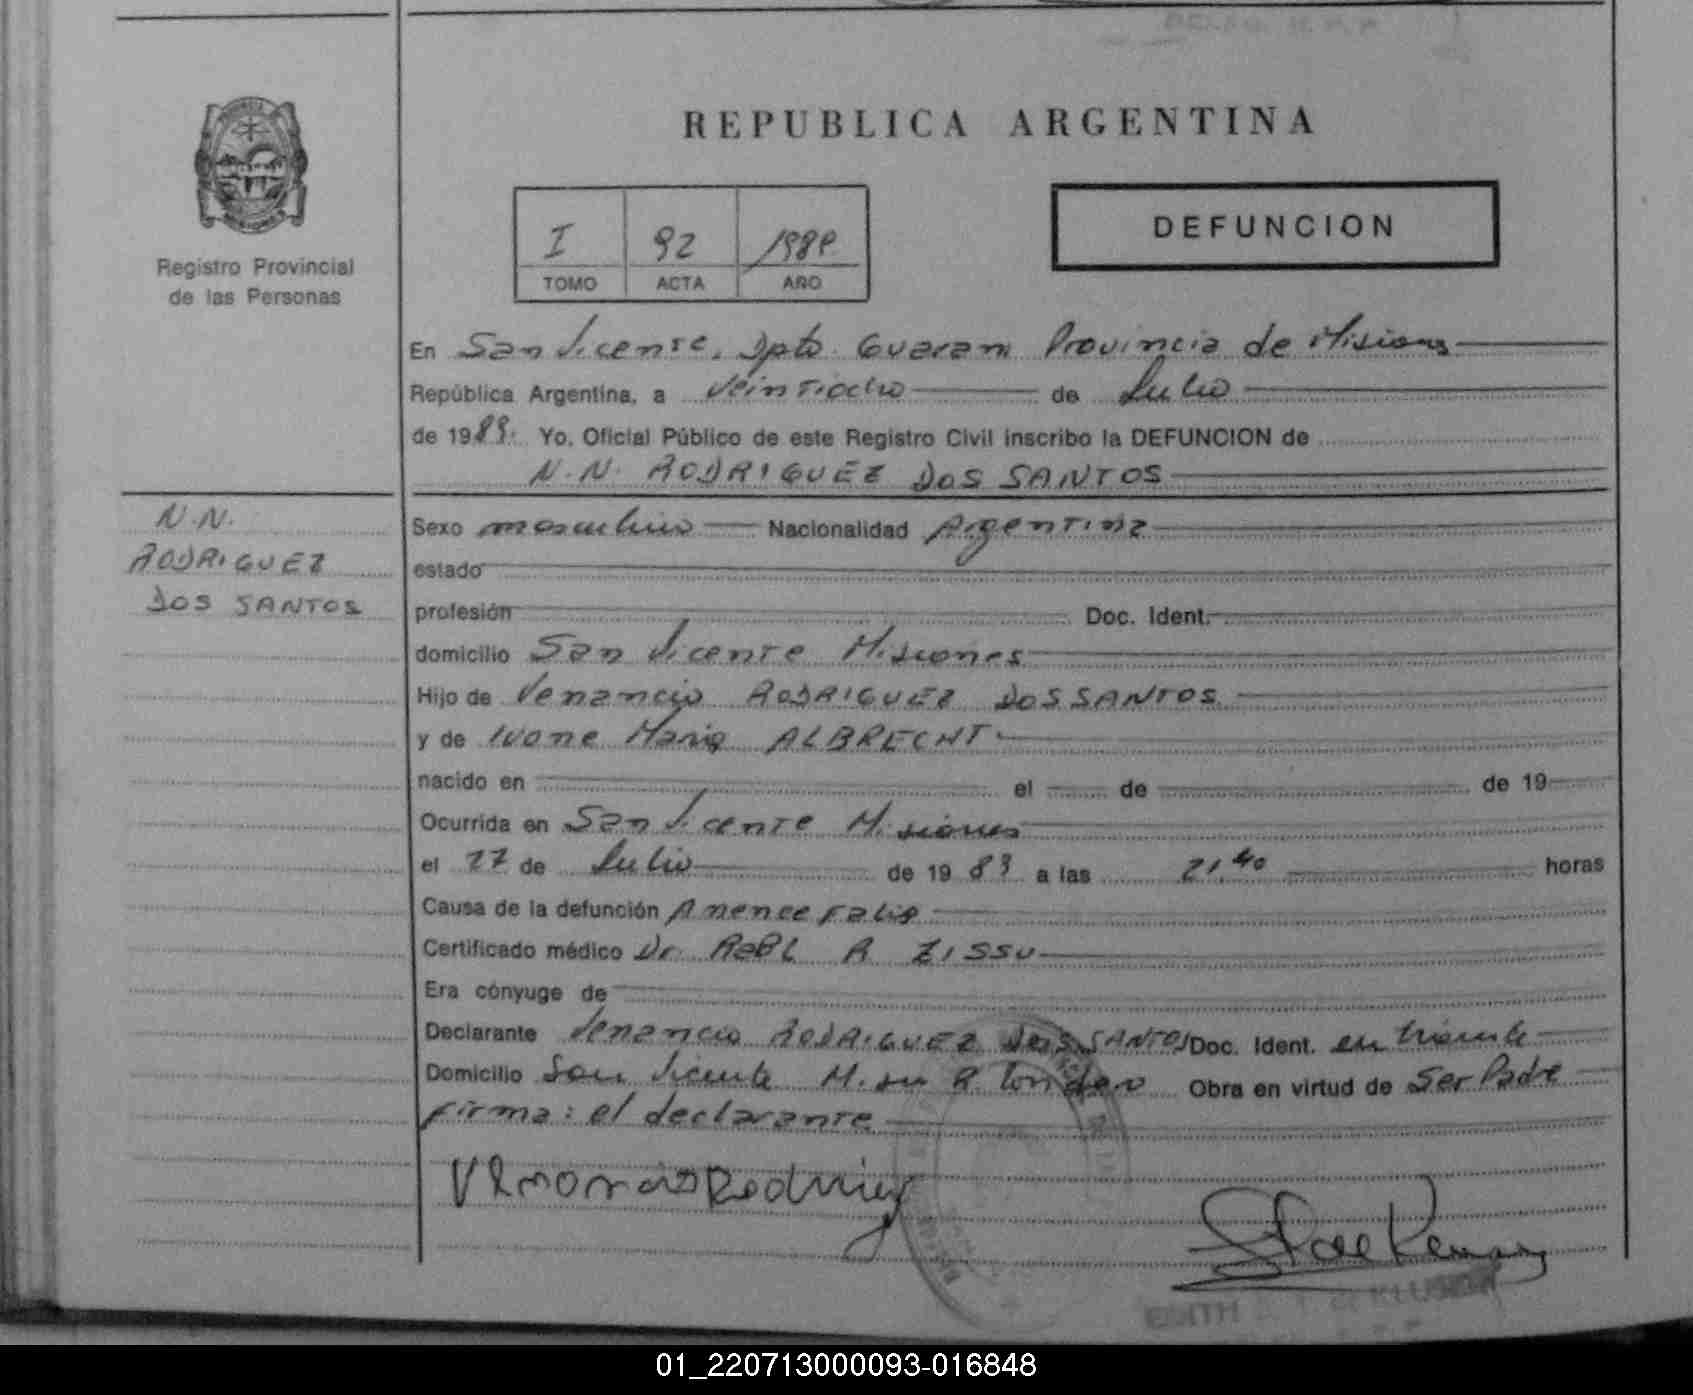 REPUBLICA ARGENTINA
Registro Provincial
de las Personas
I 92 1989
TOMO ACTA AÑO
DEFUNCION
En San Vicente, Dpto Guarani Provincia de Misiones
República Argentina, a veintiocho de Julio
de 1989. Yo, Oficial Público de este Registro Civil inscribo la DEFUNCION de
N.N. RODRIGUEZ DOS SANTOS
N.N.
RODRIGUEZ
DOS SANTOS
Sexo masculino Nacionalidad Argentina
estado
profesión Doc. Ident.
domicilio San Vicente Misiones
Hijo de Venancio RODRIGUEZ DOS SANTOS
y de Ivone Maria ALBRECHT
nacido en el de de 19
Ocurrida en San Vicente Misiones
el 27 de Julio de 1989 a las 21.40 horas
Causa de la defunción Anencefalia
Certificado médico Dr. R ZISSU
Era cónyuge de
Declarante Venancio RODRIGUEZ DOS SANTOS Doc. Ident. en trámite
Domicilio San Vicente Obra en virtud de Ser Padre
Firma: el declarante
EDITH
01_220713000093-016848